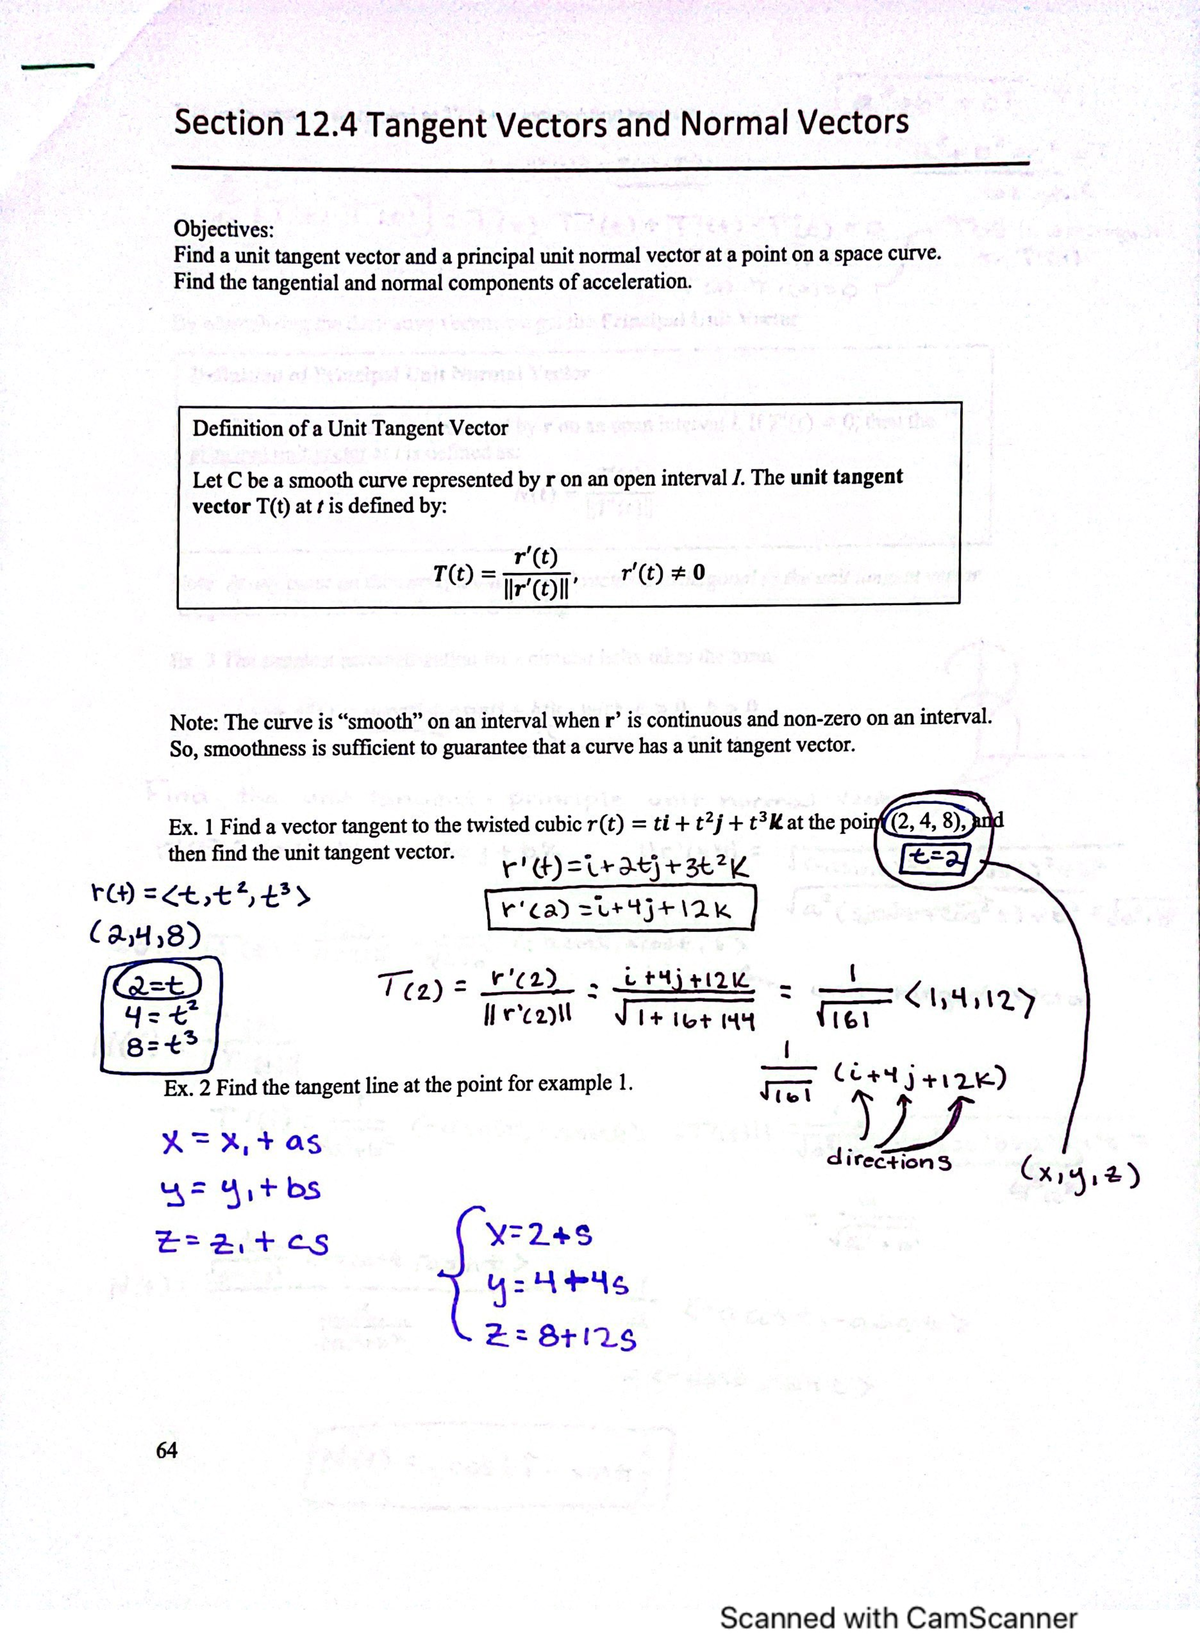 Section 12.4 Tangent Vectors and Normal Vectors
Objectives:
Find a unit tangent vector and a principal unit normal vector at a point on a space curve.
Find the tangential and normal components of acceleration.
Definition of a Unit Tangent Vector
Let C be a smooth curve represented by r on an open interval I. The unit tangent
vector T(t) at t is defined by:
T(t) = r'(t) / ||r'(t)||, r'(t) ≠ 0
Note: The curve is “smooth” on an interval when r’ is continuous and non-zero on an interval.
So, smoothness is sufficient to guarantee that a curve has a unit tangent vector.
Ex. 1 Find a vector tangent to the twisted cubic r(t) = ti + t²j + t³K at the point (2, 4, 8), and
then find the unit tangent vector.
t=2
r'(t)=i+2tj+3t²K
r(t)=<t,t²,t³>
r'(2)=i+4j+12K
(2,4,8)
2=t
4=t²
8=t³
T(2) = r'(2) / ||r'(2)|| = i+4j+12K / √1+16+144 = 1/√161 <1,4,12>
1/√161 (i+4j+12K)
directions
(x,y,z)
Ex. 2 Find the tangent line at the point for example 1.
x = x₁ + as
y = y₁ + bs
z = z₁ + cs
x=2+s
y=4+4s
z=8+12s
64
Scanned with CamScanner